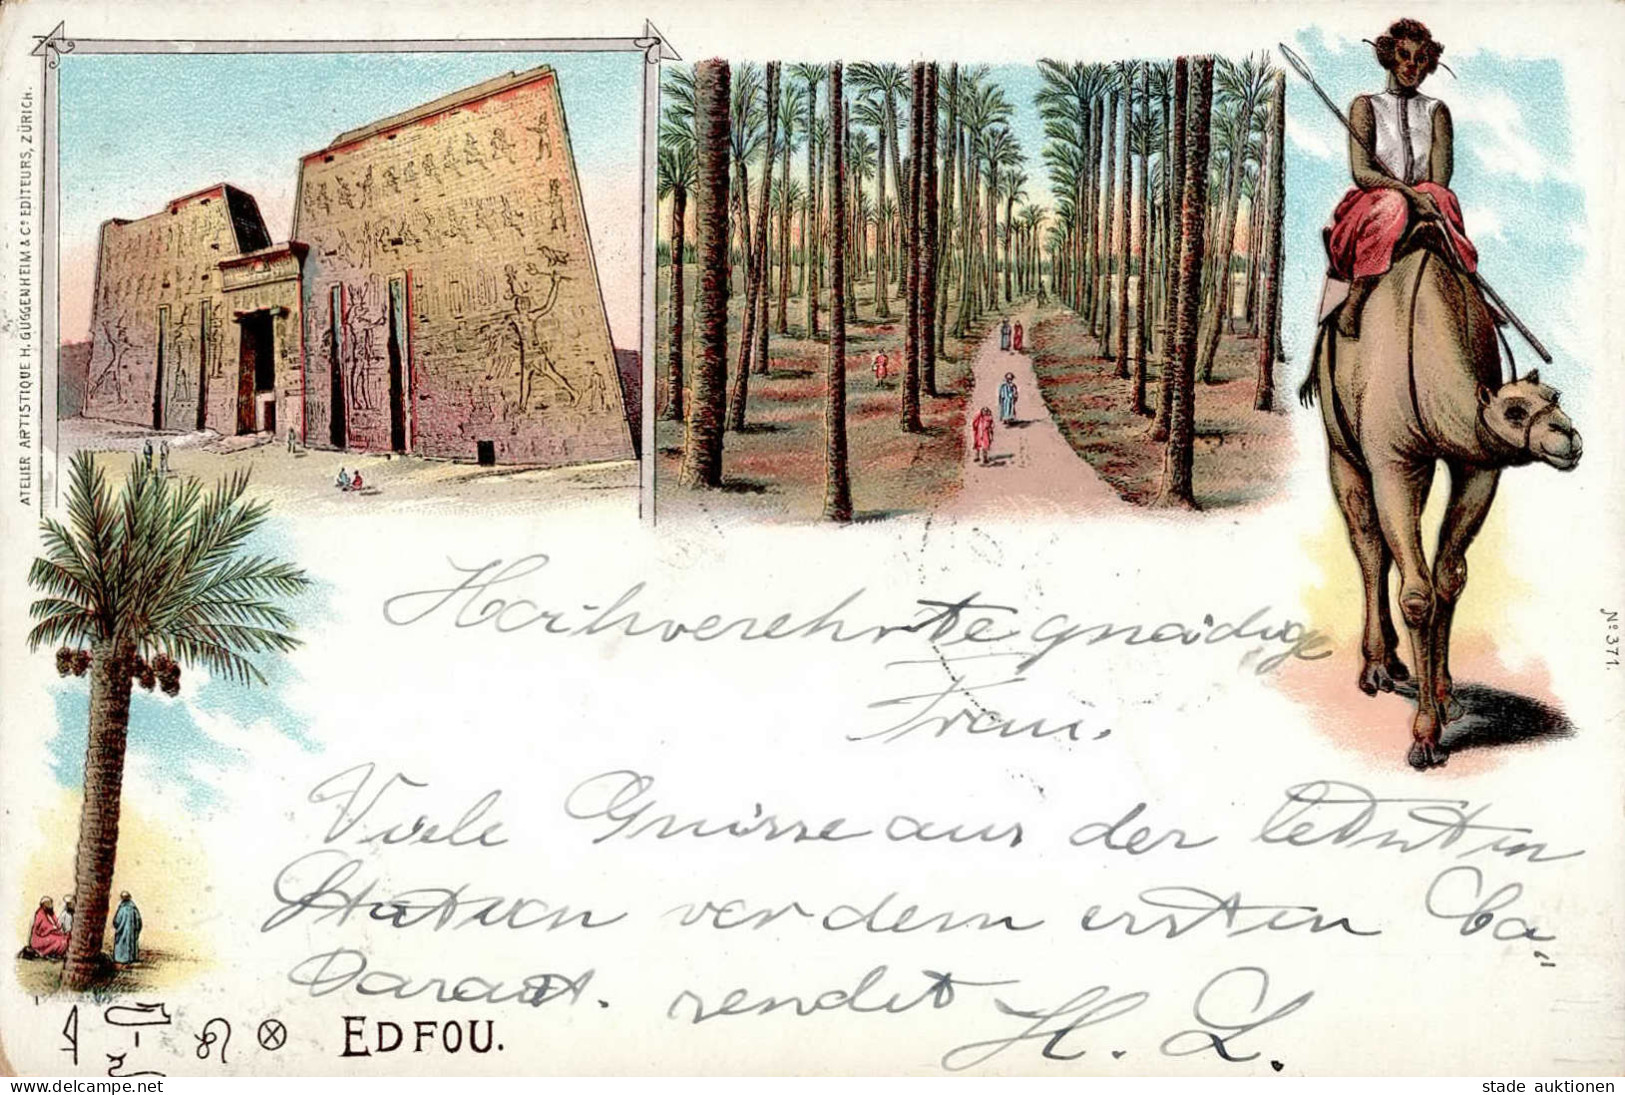 ATELIER ARTISTIQUE H. GUGGENHEIM & Cº EDITEURS, ZÜRICH.
Nº 371.
Hochverehrte gnädige
Frau.
Viele Grüsse aus der letzten
Station vor dem ersten Ca"
sendet H. L.
EDFOU.
stade auktionen